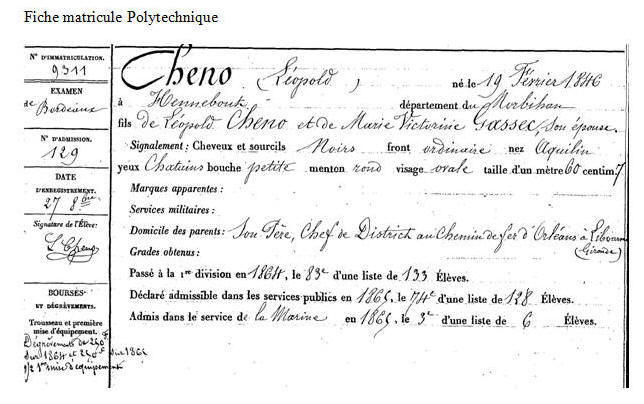 Fiche matricule Polytechnique
N° D'IMMATRICULATION.
9311
EXAMEN
de Bordeaux
N° D'ADMISSION.
129
DATE
D'ENREGISTREMENT.
27 8bre
Signature de l'Élève:
L. Cheno
BOURSES
ET DÉGRÈVEMENTS.
Trousseau et première
mise d'équipement.
Dégrèvement de 250 f
sur 1864 et 250 f sur 1865
1/2 1ère mise d'équipement
Cheno (Léopold) né le 19 Février 1846
à Hennebont département du Morbihan
fils de Léopold Cheno et de Marie Victorine Gassec, son épouse
Signalement: Cheveux et sourcils Noirs front ordinaire nez Aquilin
yeux Chatains bouche petite menton rond visage ovale taille d'un mètre 60 centim. 7
Marques apparentes:
Services militaires:
Domicile des parents: Son Père, Chef de District au Chemin de fer d'Orléans à Libourne
(Gironde)
Grades obtenus:
Passé à la 1re division en 1864, le 83e d'une liste de 133 Élèves.
Déclaré admissible dans les services publics en 1865, le 74e d'une liste de 128 Élèves.
Admis dans le service de la Marine en 1865, le 3e d'une liste de 6 Élèves.